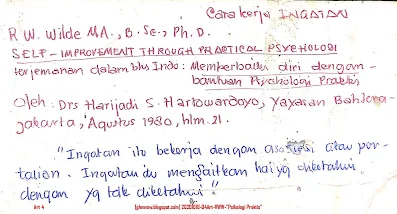 Cara kerja INGATAN
R.W. Wilde MA., B.Sc., Ph.D.
SELF-IMPROVEMENT THROUGH PRACTICAL PSYCHOLOGI
terjemahan dalam bhs Indo: Memperbaiki diri dengan
bantuan Psychologi Praktis
Oleh: Drs Harijadi S. Hartowardojo, Yayasan Bahtera
Jakarta, Agustus 1980, hlm. 21.
"Ingatan itu bekerja dengan asosiasi atau per-
talian. Ingatan itu mengaitkan hal yg diketahui
dengan yg tak diketahui."
Art 4